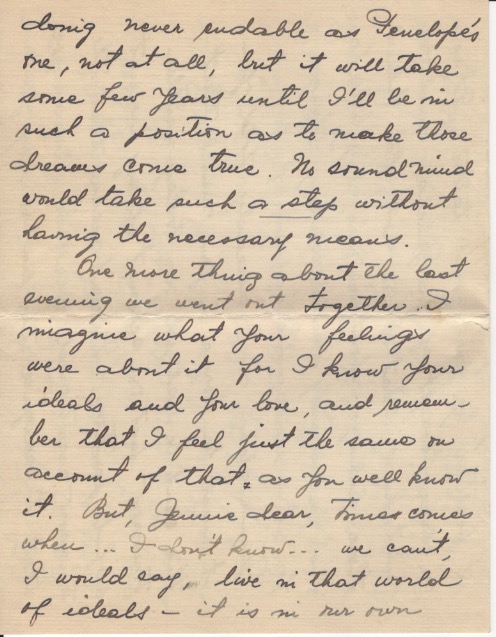 doing never endable as Penelope's
one, not at all, but it will take
some few years until I'll be in
such a position as to make those
dreams come true. No sound mind
would take such a step without
having the necessary means.
One more thing about the last
evening we went out together. I
imagine what your feelings
were about it for I know your
ideals and your love, and remem-
ber that I feel just the same on
account of that, as you well know
it. But, Jennie dear, times comes
when... I don't know... we can't,
I would say, live in that world
of ideals - it is in our own